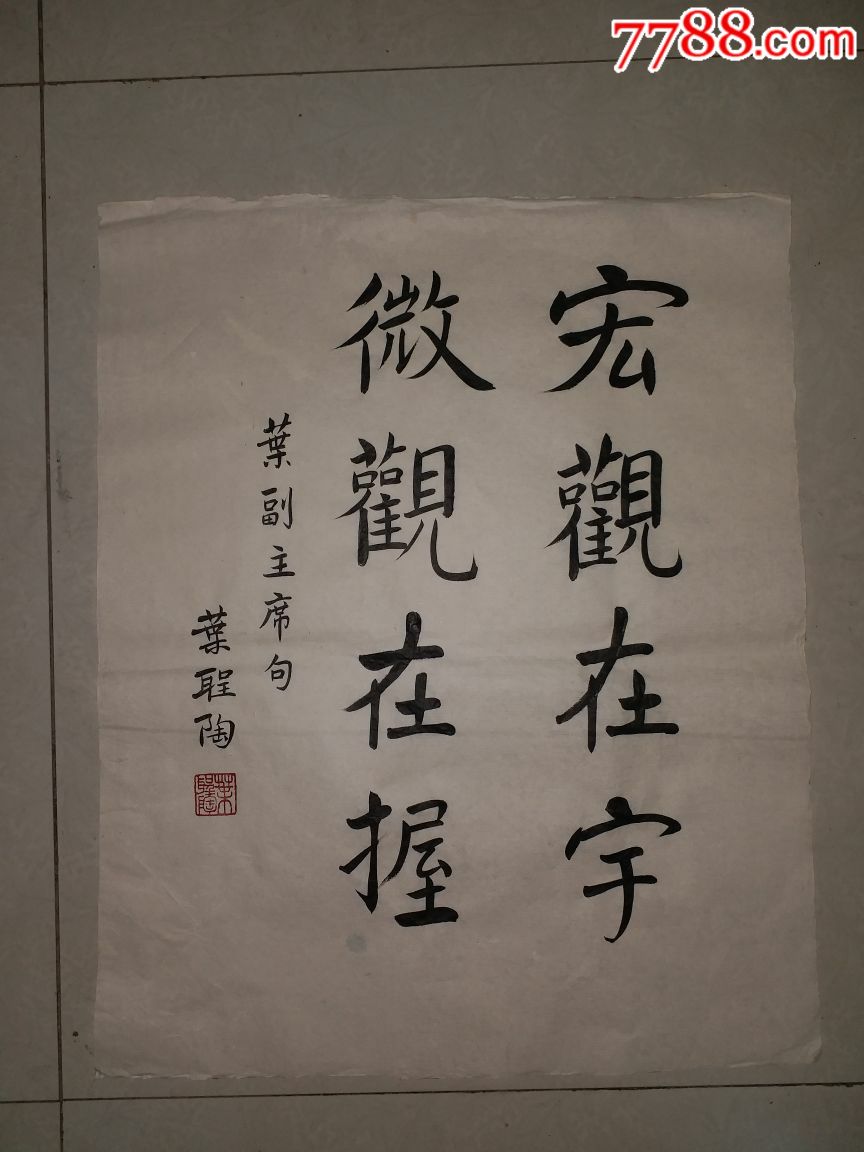 7788.com
宏觀在宇
微觀在握
葉副主席句
葉聖陶
葉聖陶